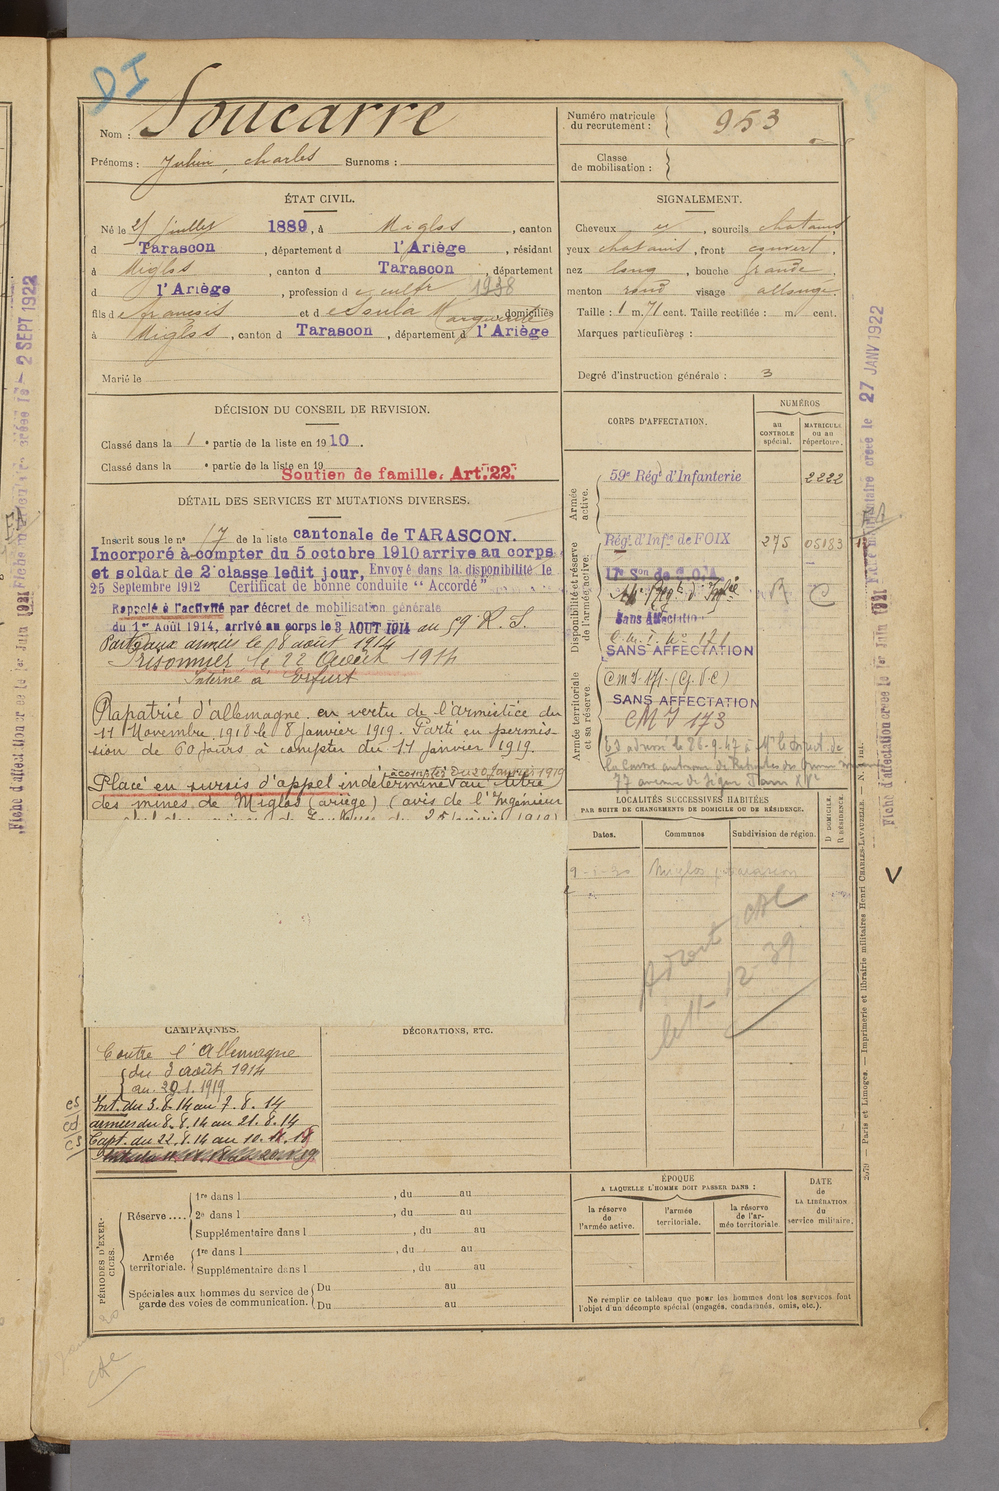 DI
Nom : Soucarre
Prénoms : Julien, Charles Surnoms :
Numéro matricule du recrutement : 953
Classe de mobilisation :
ÉTAT CIVIL.
Né le 25 juillet 1889, à Miglos, canton
d Tarascon, département d l'Ariège, résidant
à Miglos, canton d Tarascon, département
d l'Ariège, profession d e cultr 1938
fils de françois et de Soula Marguerite domiciliés
à Miglos, canton d Tarascon, département d l'Ariège
Marié le
SIGNALEMENT.
Cheveux et, sourcils chatains
yeux chatains, front couvert,
nez long, bouche grande,
menton rond visage allongé.
Taille : 1 m. 71 cent. Taille rectifiée : m. cent.
Marques particulières :
Degré d'instruction générale : 3
DÉCISION DU CONSEIL DE REVISION.
Classé dans la 1e partie de la liste en 1910.
Classé dans la e partie de la liste en 19
Soutien de famille. Art. 22.
DÉTAIL DES SERVICES ET MUTATIONS DIVERSES.
Inscrit sous le n° 17 de la liste cantonale de TARASCON.
Incorporé à compter du 5 octobre 1910 arrive au corps
et soldat de 2e classe ledit jour, Envoyé dans la disponibilité le
25 Septembre 1912 Certificat de bonne conduite "Accordé"
Rappelé à l'activité par décret de mobilisation générale
du 1er Août 1914, arrivé au corps le 3 AOUT 1914 au 59 R.I.
Parti aux armées le 8 août 1914
Prisonnier le 22 Août 1914
Interné à Erfurt
Rapatrié d'allemagne en vertu de l'armistice du
11 Novembre 1918 le 8 Janvier 1919. Parti en permis-
sion de 60 jours à compter du 11 janvier 1919.
à compter du 20 Janvier 1919
Placé en sursis d'appel indéterminé au titre
des mines de Miglos (ariège) (avis de l'Ingénieur
CORPS D'AFFECTATION.
NUMÉROS
au CONTROLE spécial.
MATRICULE ou au répertoire.
Armée active.
59e Régt d'Infanterie 2222
Disponibilité et réserve de l'armée active.
Régt d'Infie de FOIX 275 05183
17e Son de C.O.A
Sans Affectation
C.M.I. No 171
SANS AFFECTATION
Armée territoriale et sa réserve.
CMI 171. (G.V.C)
SANS AFFECTATION
CMI 173
LOCALITÉS SUCCESSIVES HABITÉES
PAR SUITE DE CHANGEMENTS DE DOMICILE OU DE RÉSIDENCE.
Dates. Communes Subdivision de région.
D DOMICILE. R RÉSIDENCE.
9-1-30 Miglos Tarascon
CAMPAGNES.
Contre l'Allemagne
du 3 août 1914
au 20.1.1919
Int. du 3.8.14 au 7.8.14
armées du 8.8.14 au 21.8.14
Capt. du 22.8.14 au 10.11.18
DÉCORATIONS, ETC.
PÉRIODES D'EXERCICES.
Réserve....
1re dans l , du au
2e dans l , du au
Supplémentaire dans l , du au
Armée territoriale.
1re dans l , du au
Supplémentaire dans l , du au
Spéciales aux hommes du service de garde des voies de communication.
Du au
Du au
ÉPOQUE
A LAQUELLE L'HOMME DOIT PASSER DANS :
la réserve de l'armée active.
l'armée territoriale.
la réserve de l'armée territoriale.
DATE de LA LIBÉRATION du service militaire.
Ne remplir ce tableau que pour les hommes dont les services font
l'objet d'un décompte spécial (engagés, condamnés, omis, etc.).
Paris et Limoges. — Imprimerie et librairie militaires Henri CHARLES-LAVAUZELLE.
27 JANV 1922
Fiche d'affectation créée le 1er Juin 1921
2 SEPT 1922